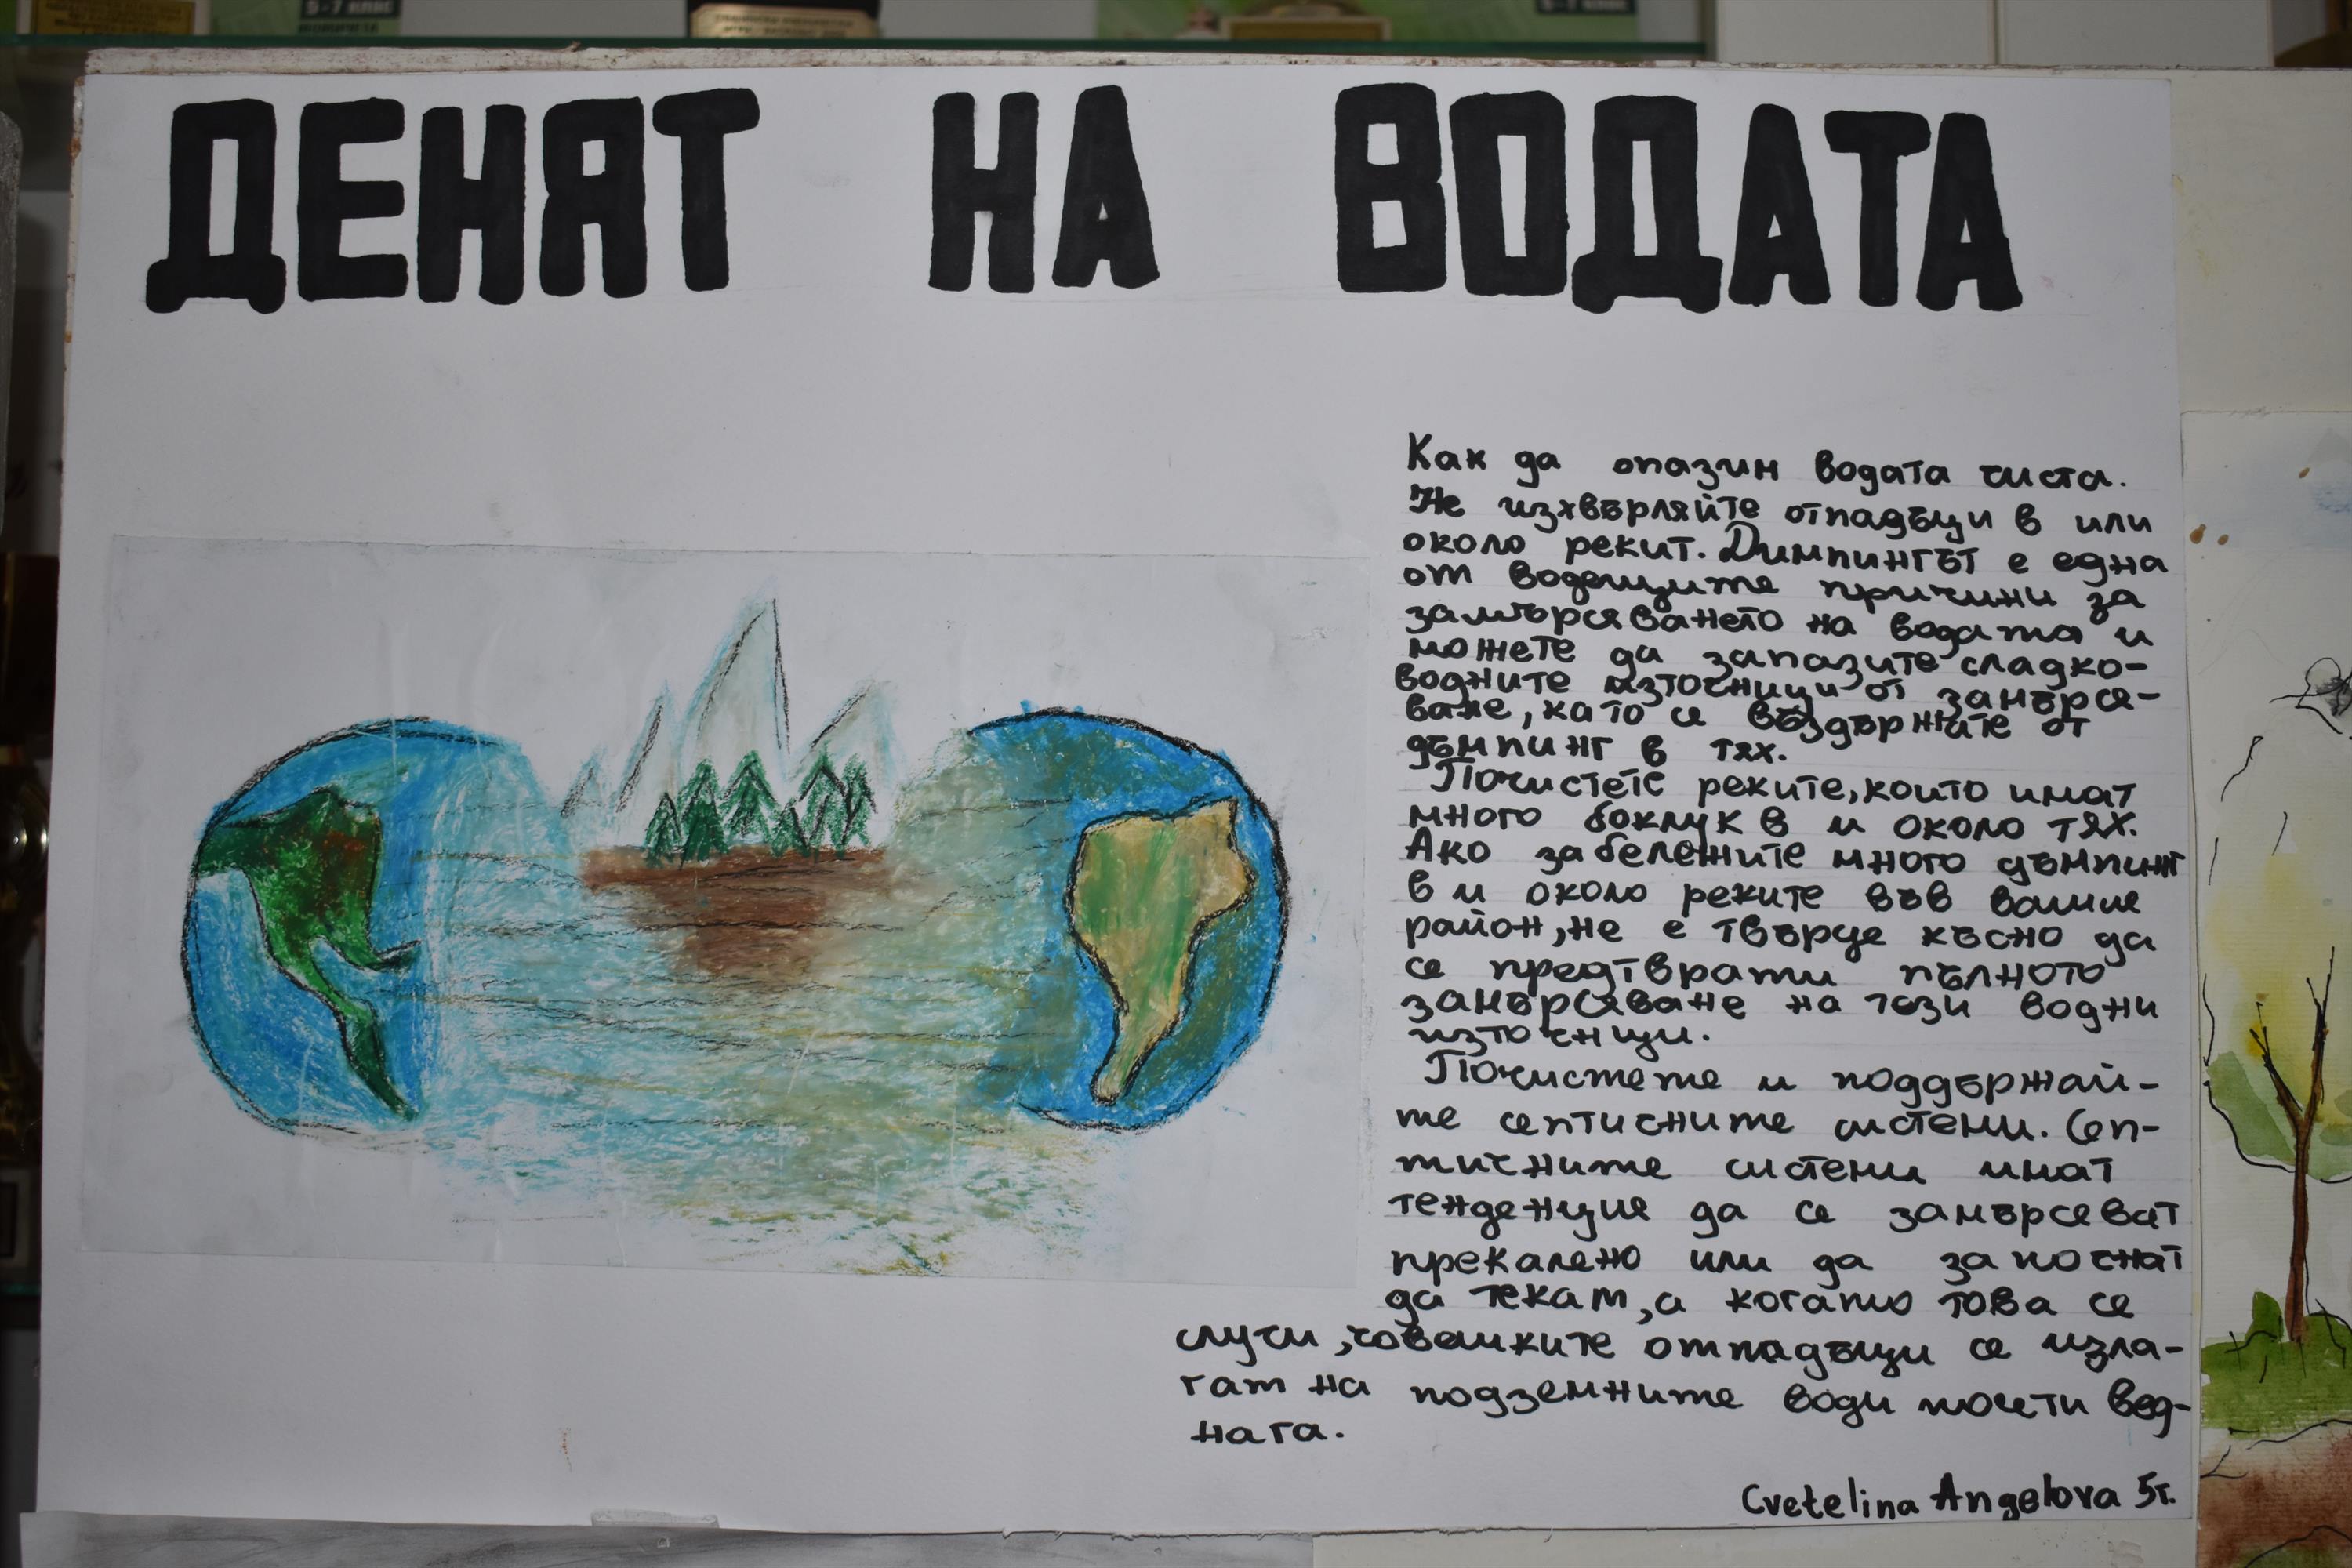 5-7 клас
ДЕНЯТ НА ВОДАТА
Как да опазин водата чиста.
Не изхвърляйте отпадъци в или
около рекит. Димпингът е една
от водещите причини за
замърсяването на водата и
можете да запазите сладко-
водните източници от замърся-
ване, като се въздържите от
дъмпинг в тях.
Почистете реките, които имат
много боклук в и около тях.
Ако забележите много дъмпинг
в и около реките във вашия
район, не е твърде късно да
се предтврати пълното
замърсяване на тези водни
източници.
Почистете и поддържай-
те септисните системи. Сеп-
тичните системи имат
тенденция да се замърсеват
прекалено или да започнат
да текат, а когато това се
случи, човешките отпадъци се изла-
гат на подземните води почти вед-
нага.
Cvetelina Angelova 5г.